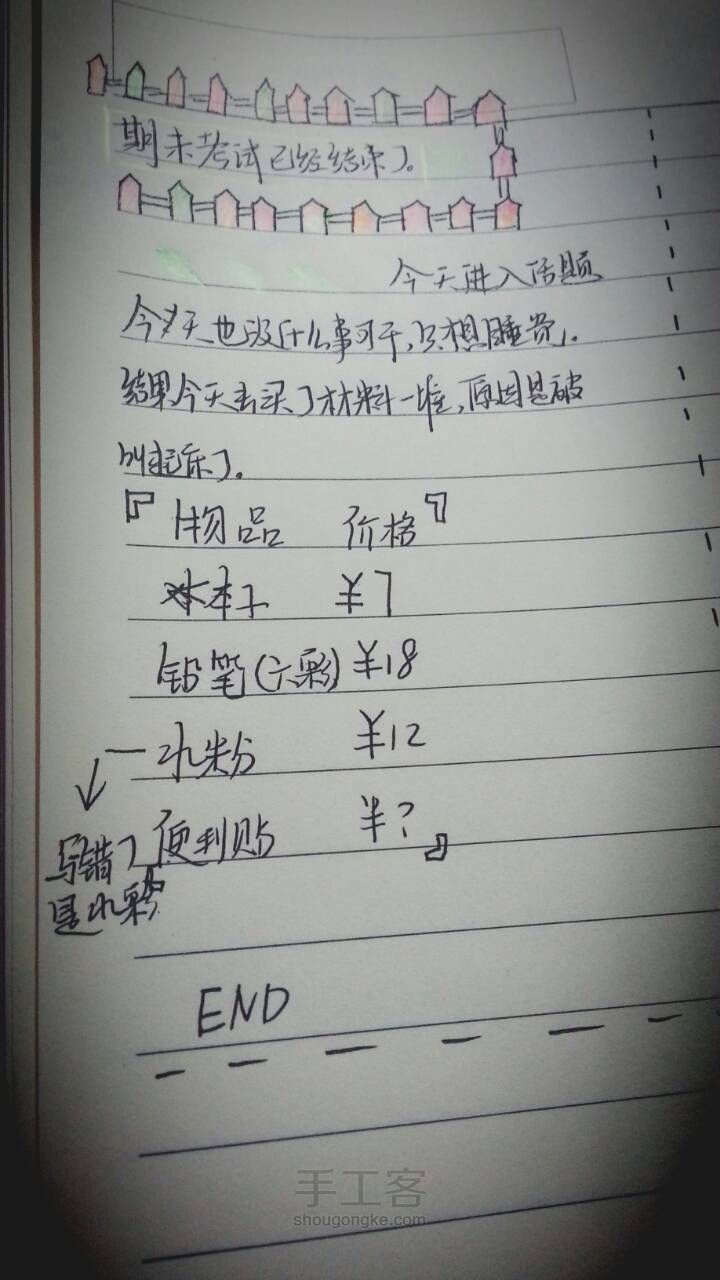 期末考试已经结束了。
今天进入话题
今天也没什么事可干,只想睡觉,
结果今天去买了材料一堆,原因是被
叫起床了.
『物品 价格』
本子 ¥7
铅笔(六彩) ¥18
水粉 ¥12
便利贴 ¥?
写错了
是水彩
END
手工客
shougongke.com